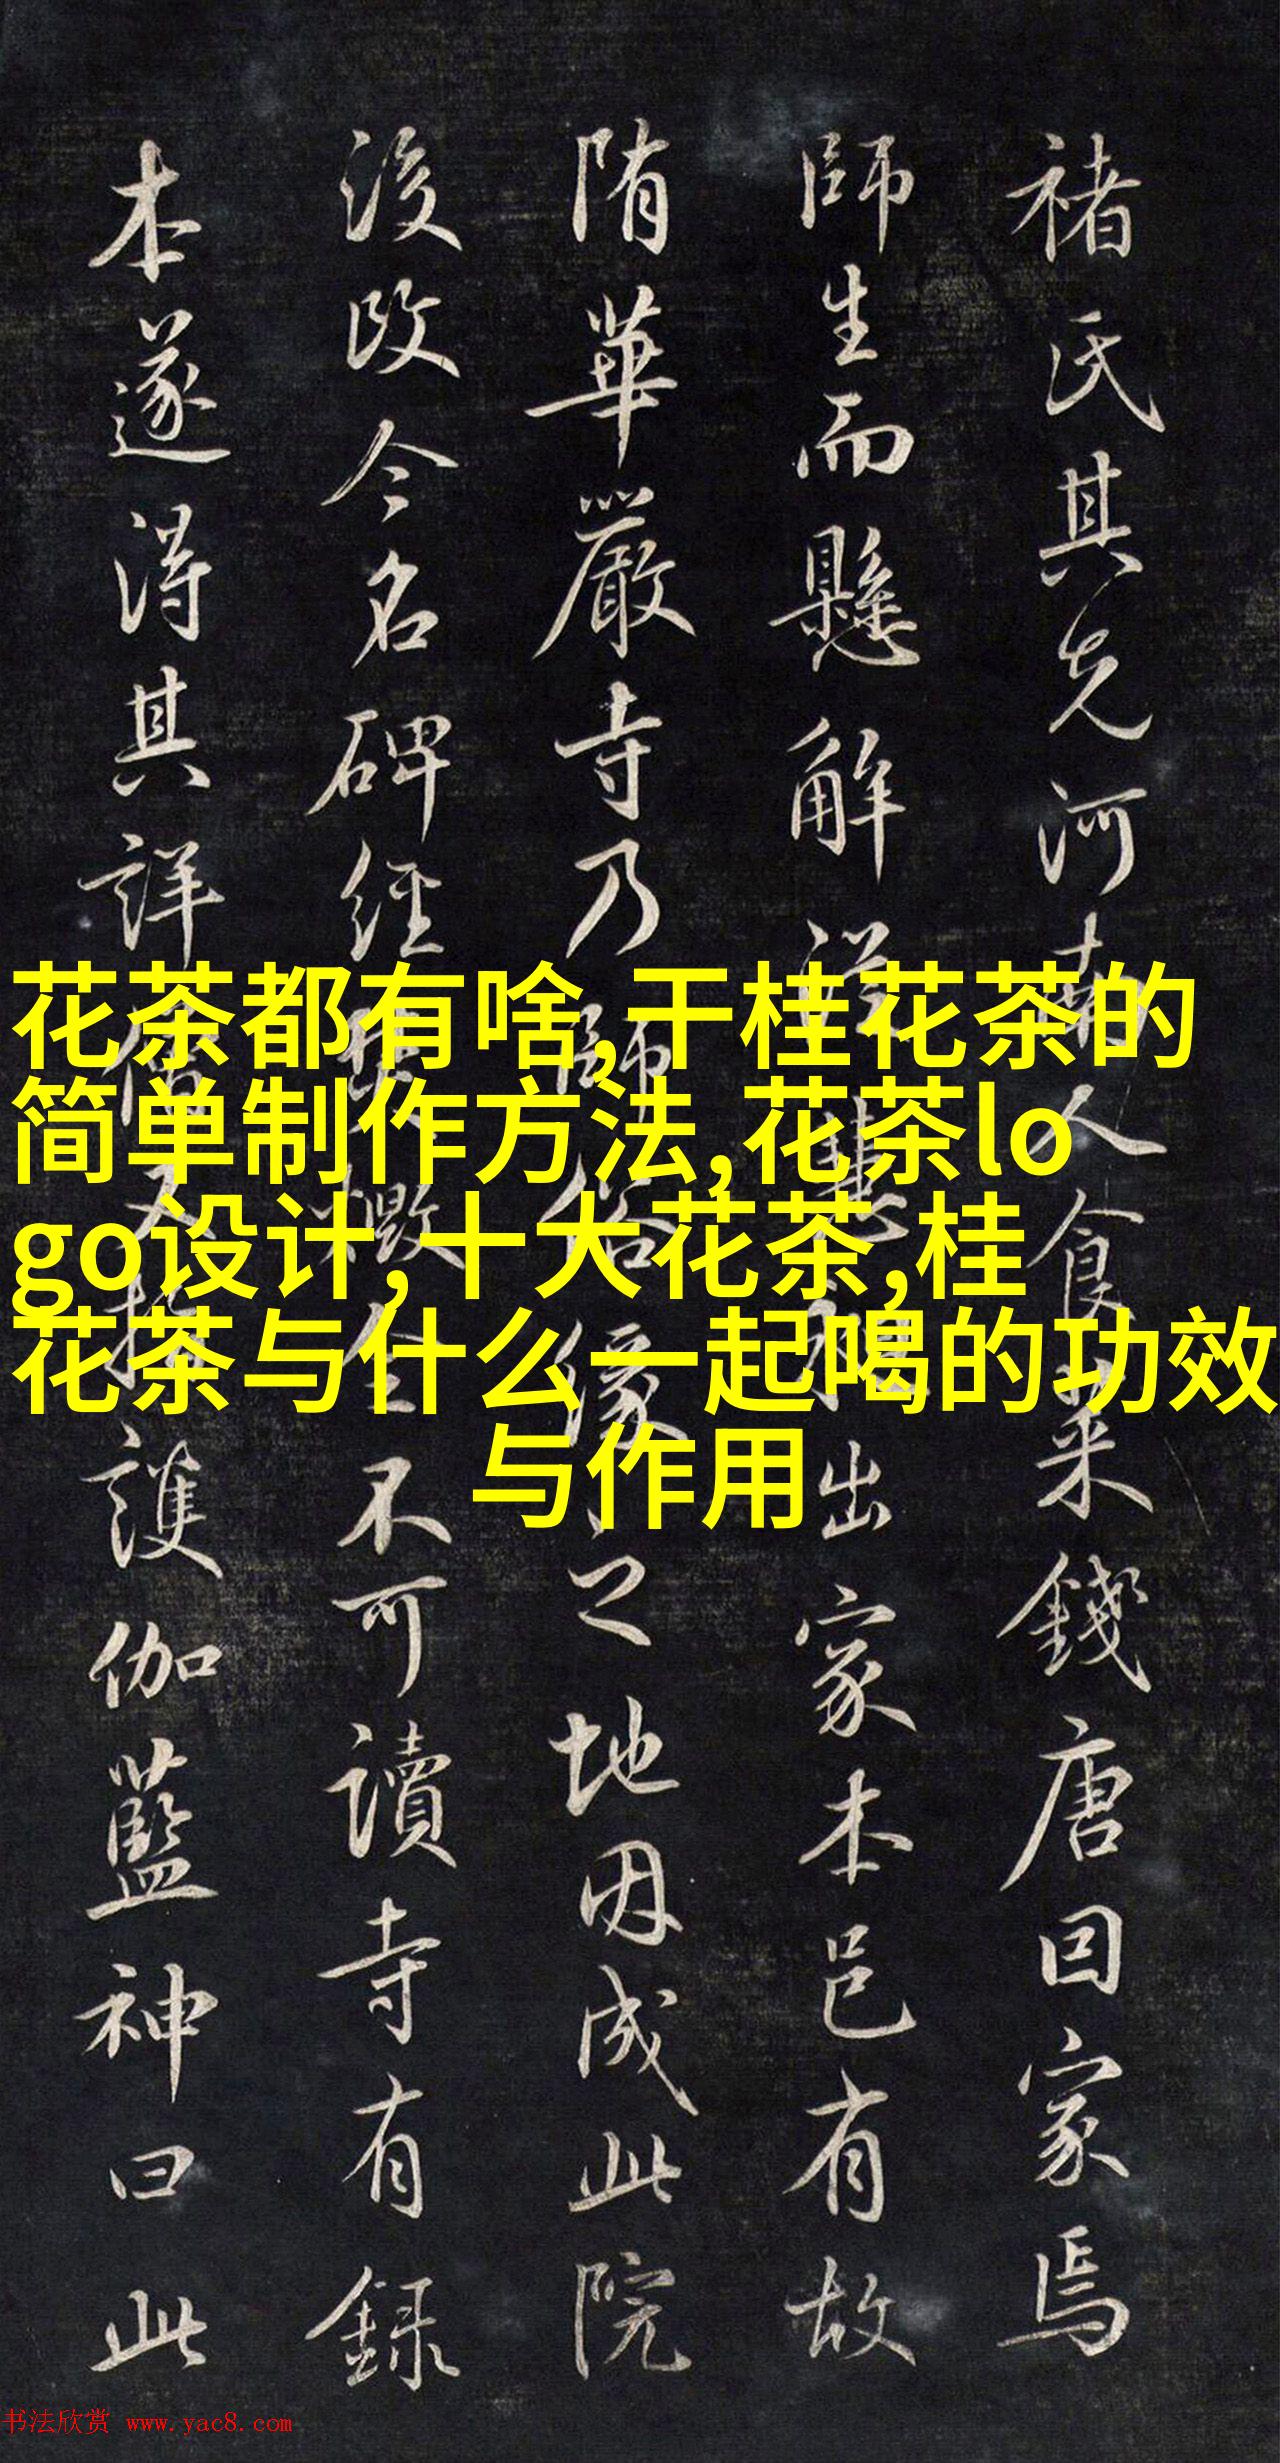 褚氏其先河南人食菜錢唐因家焉
師生而懸解詳慧出家本邑有故
隋華嚴寺乃師俗緣之地因成此院
後改今名碑經全不可讀寺有録
本遂得其詳僧又指護伽藍神曰此
花茶都有啥,干桂花茶的
简单制作方法,花茶lo
go设计,十大花茶,桂
花茶与什么一起喝的功效
与作用
书法欣赏 www.yac8.com